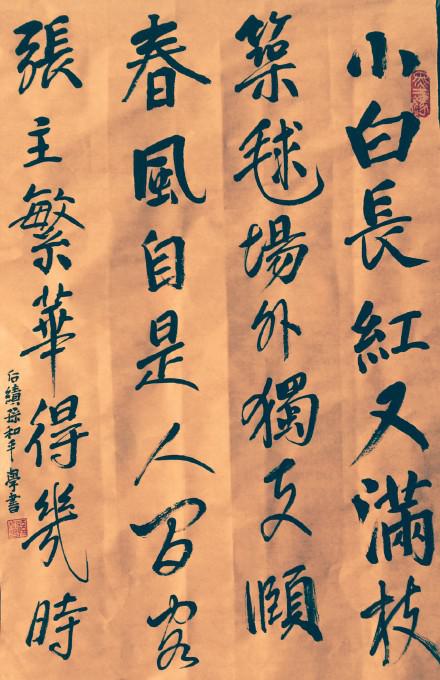 小白長紅又滿枝
築毬場外獨支頤
春風自是人间客
張主繁華得幾時
和平學書